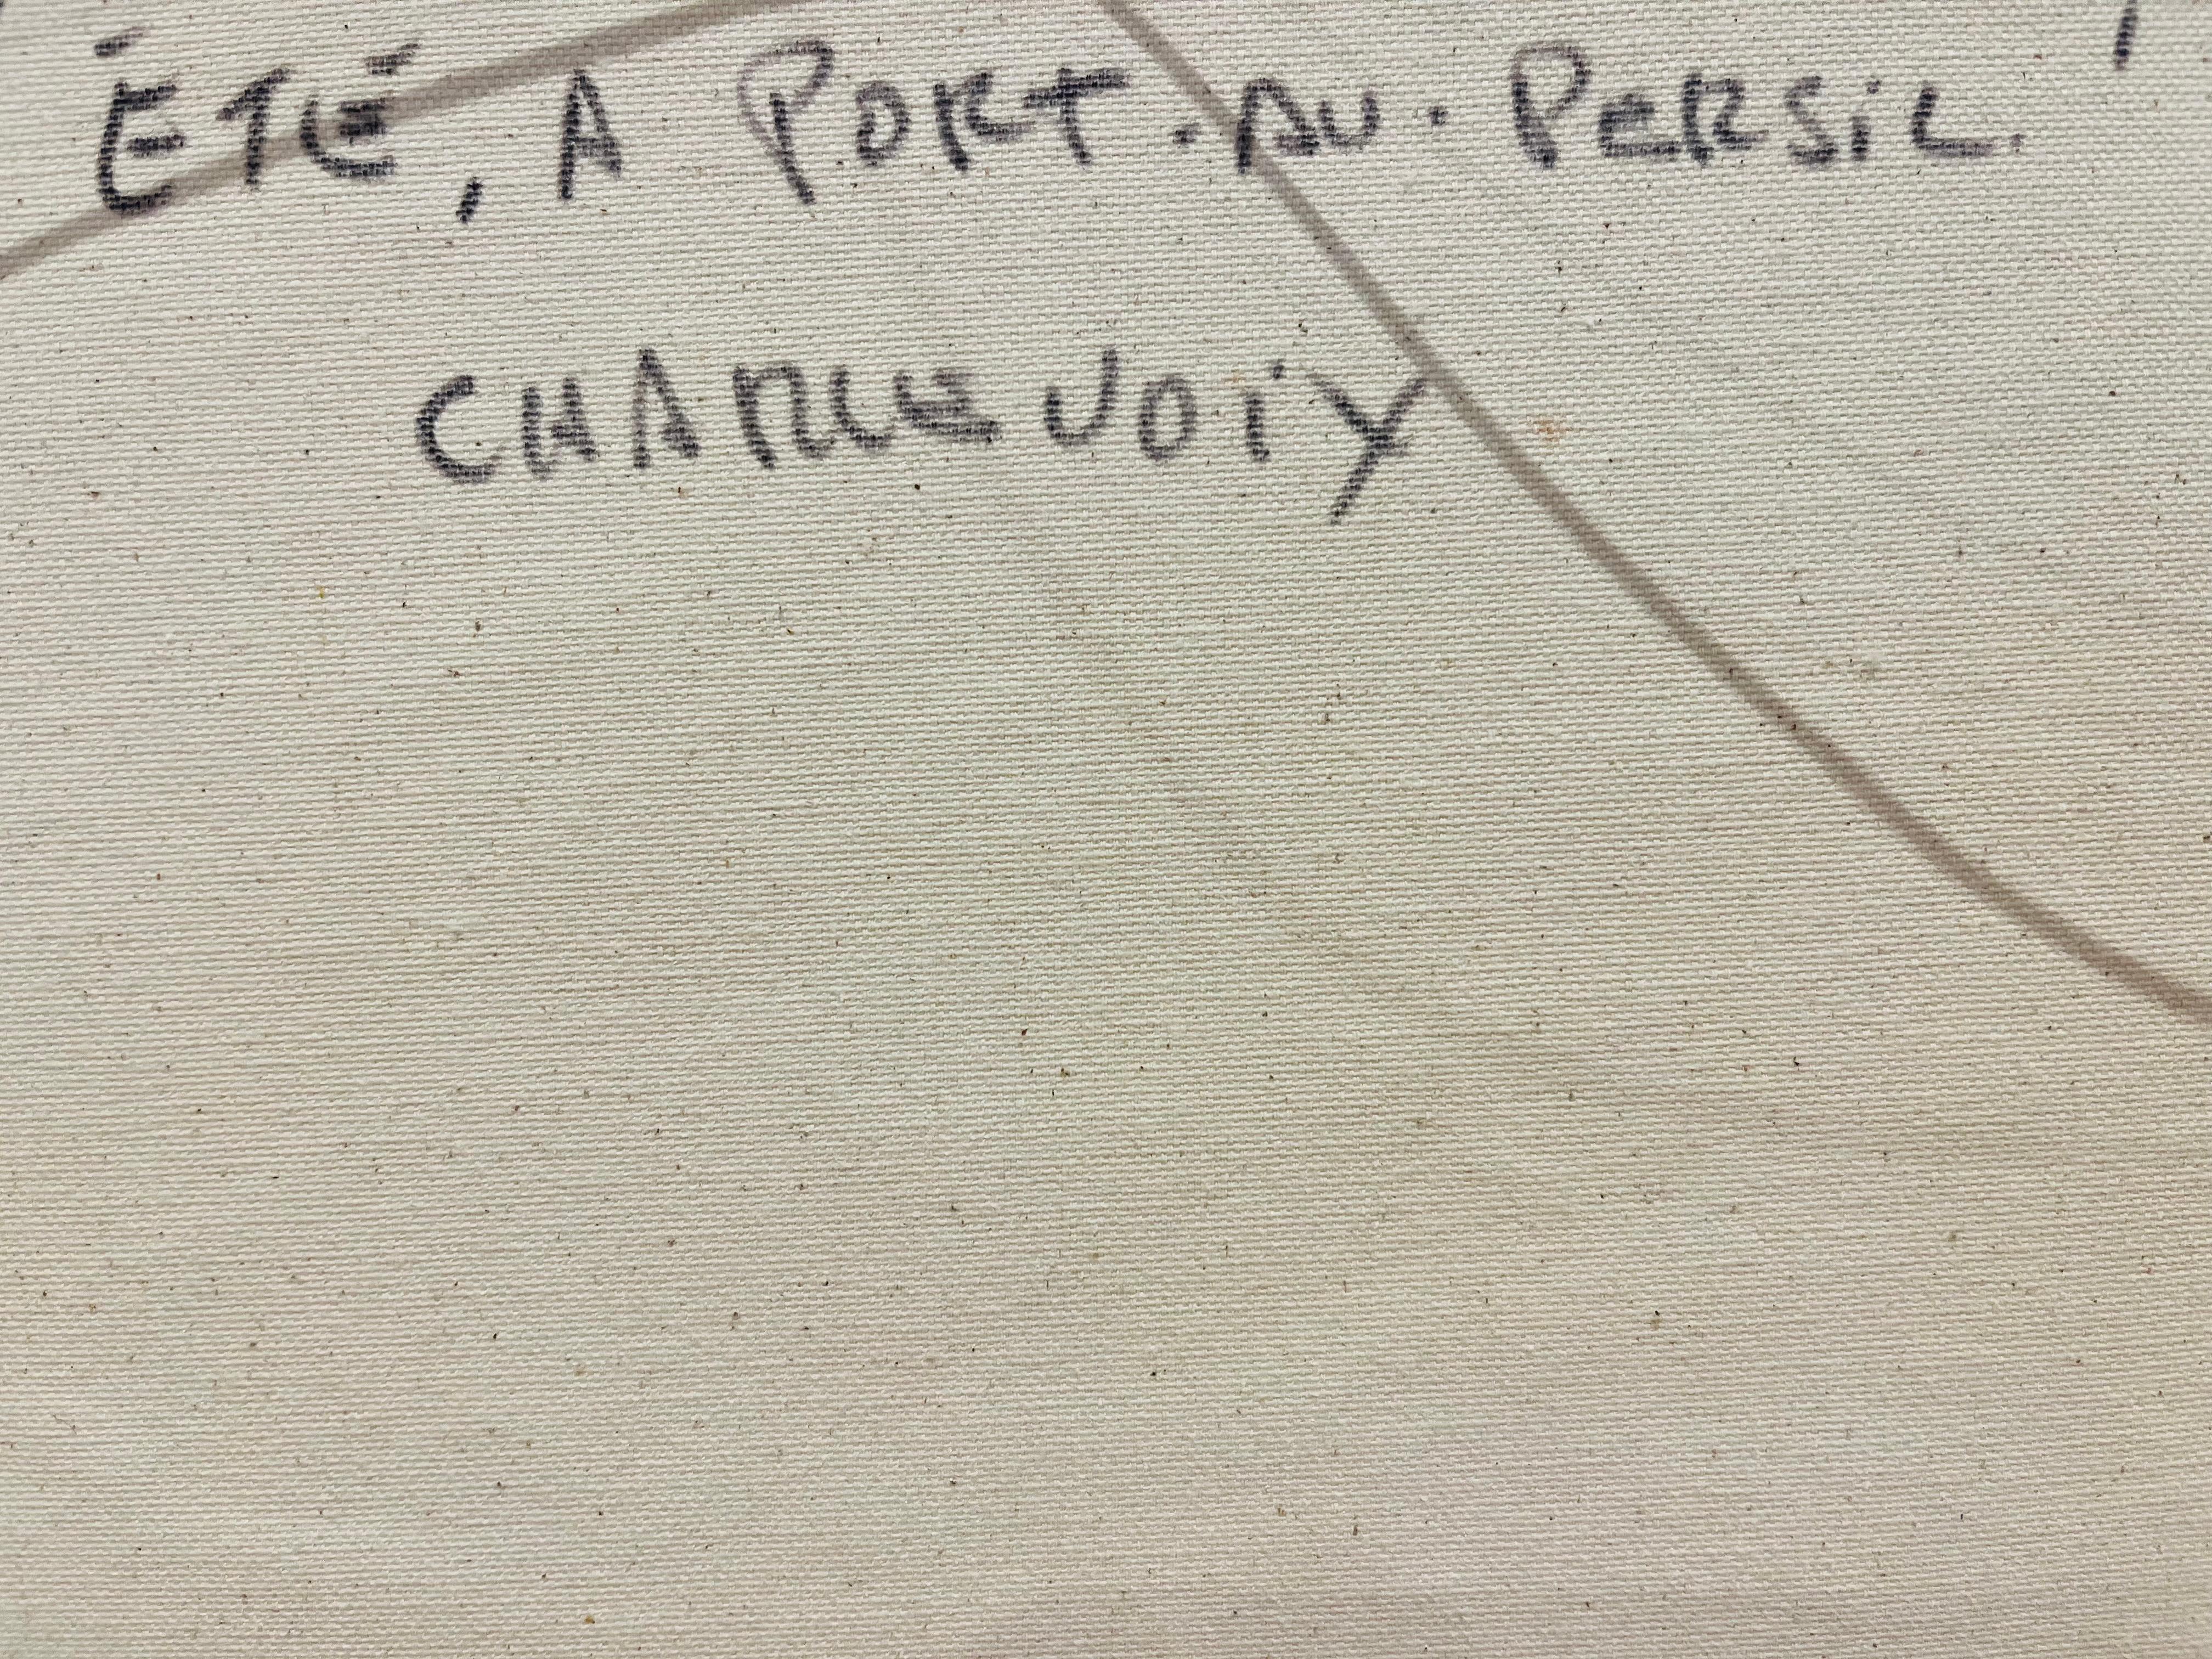 ÉTÉ, A PORT.AU.PERSIL.
CHARLEVOIX